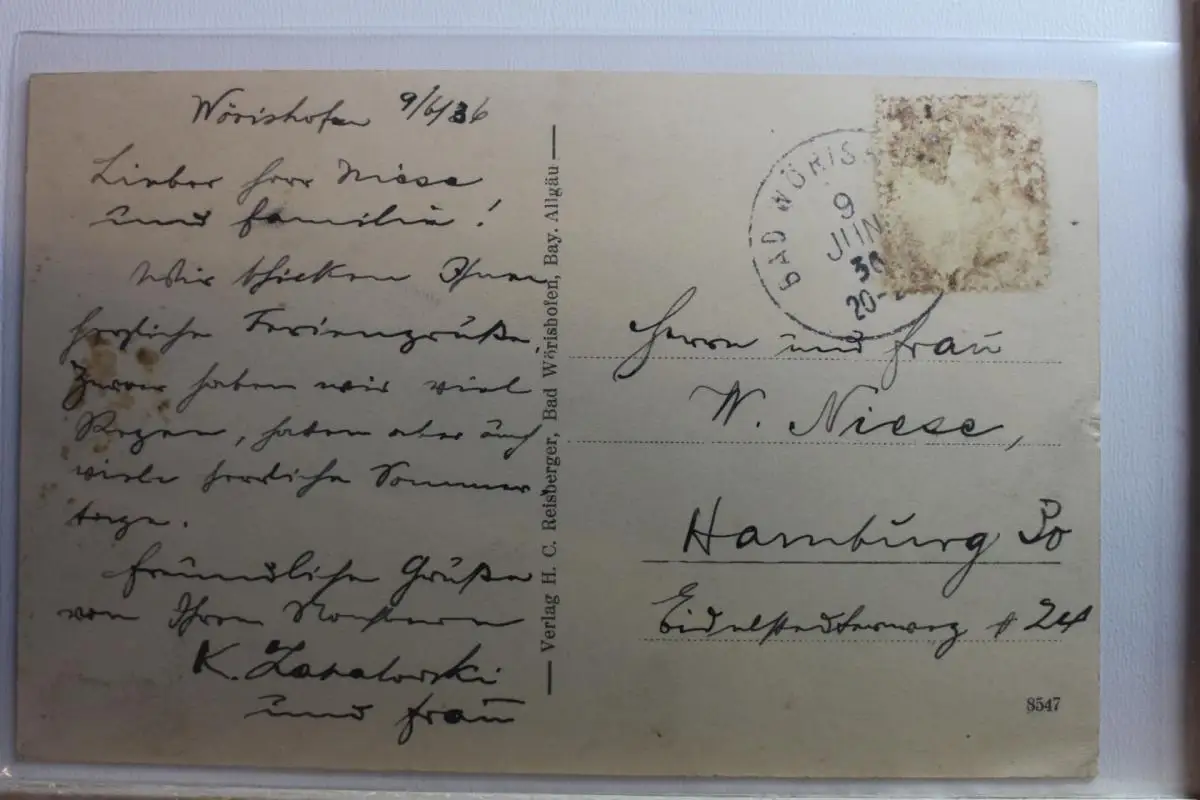 Wörishofen 9/6/36
Lieber Herr Niese
und Familie!
Wir schicken Ihnen
herzliche Feriengrüße.
Zwar haben wir viel
Regen, haben aber auch
viele herrliche Sommer
tage.
Freundliche Grüße
von Ihren
K.
und Frau
Verlag H. C. Reisberger, Bad Wörishofen, Bay. Allgäu
BAD WÖRIS
9
JUN
36
20-
Herrn und Frau
W. Niese,
Hamburg
Eidelstedterweg 24
8547